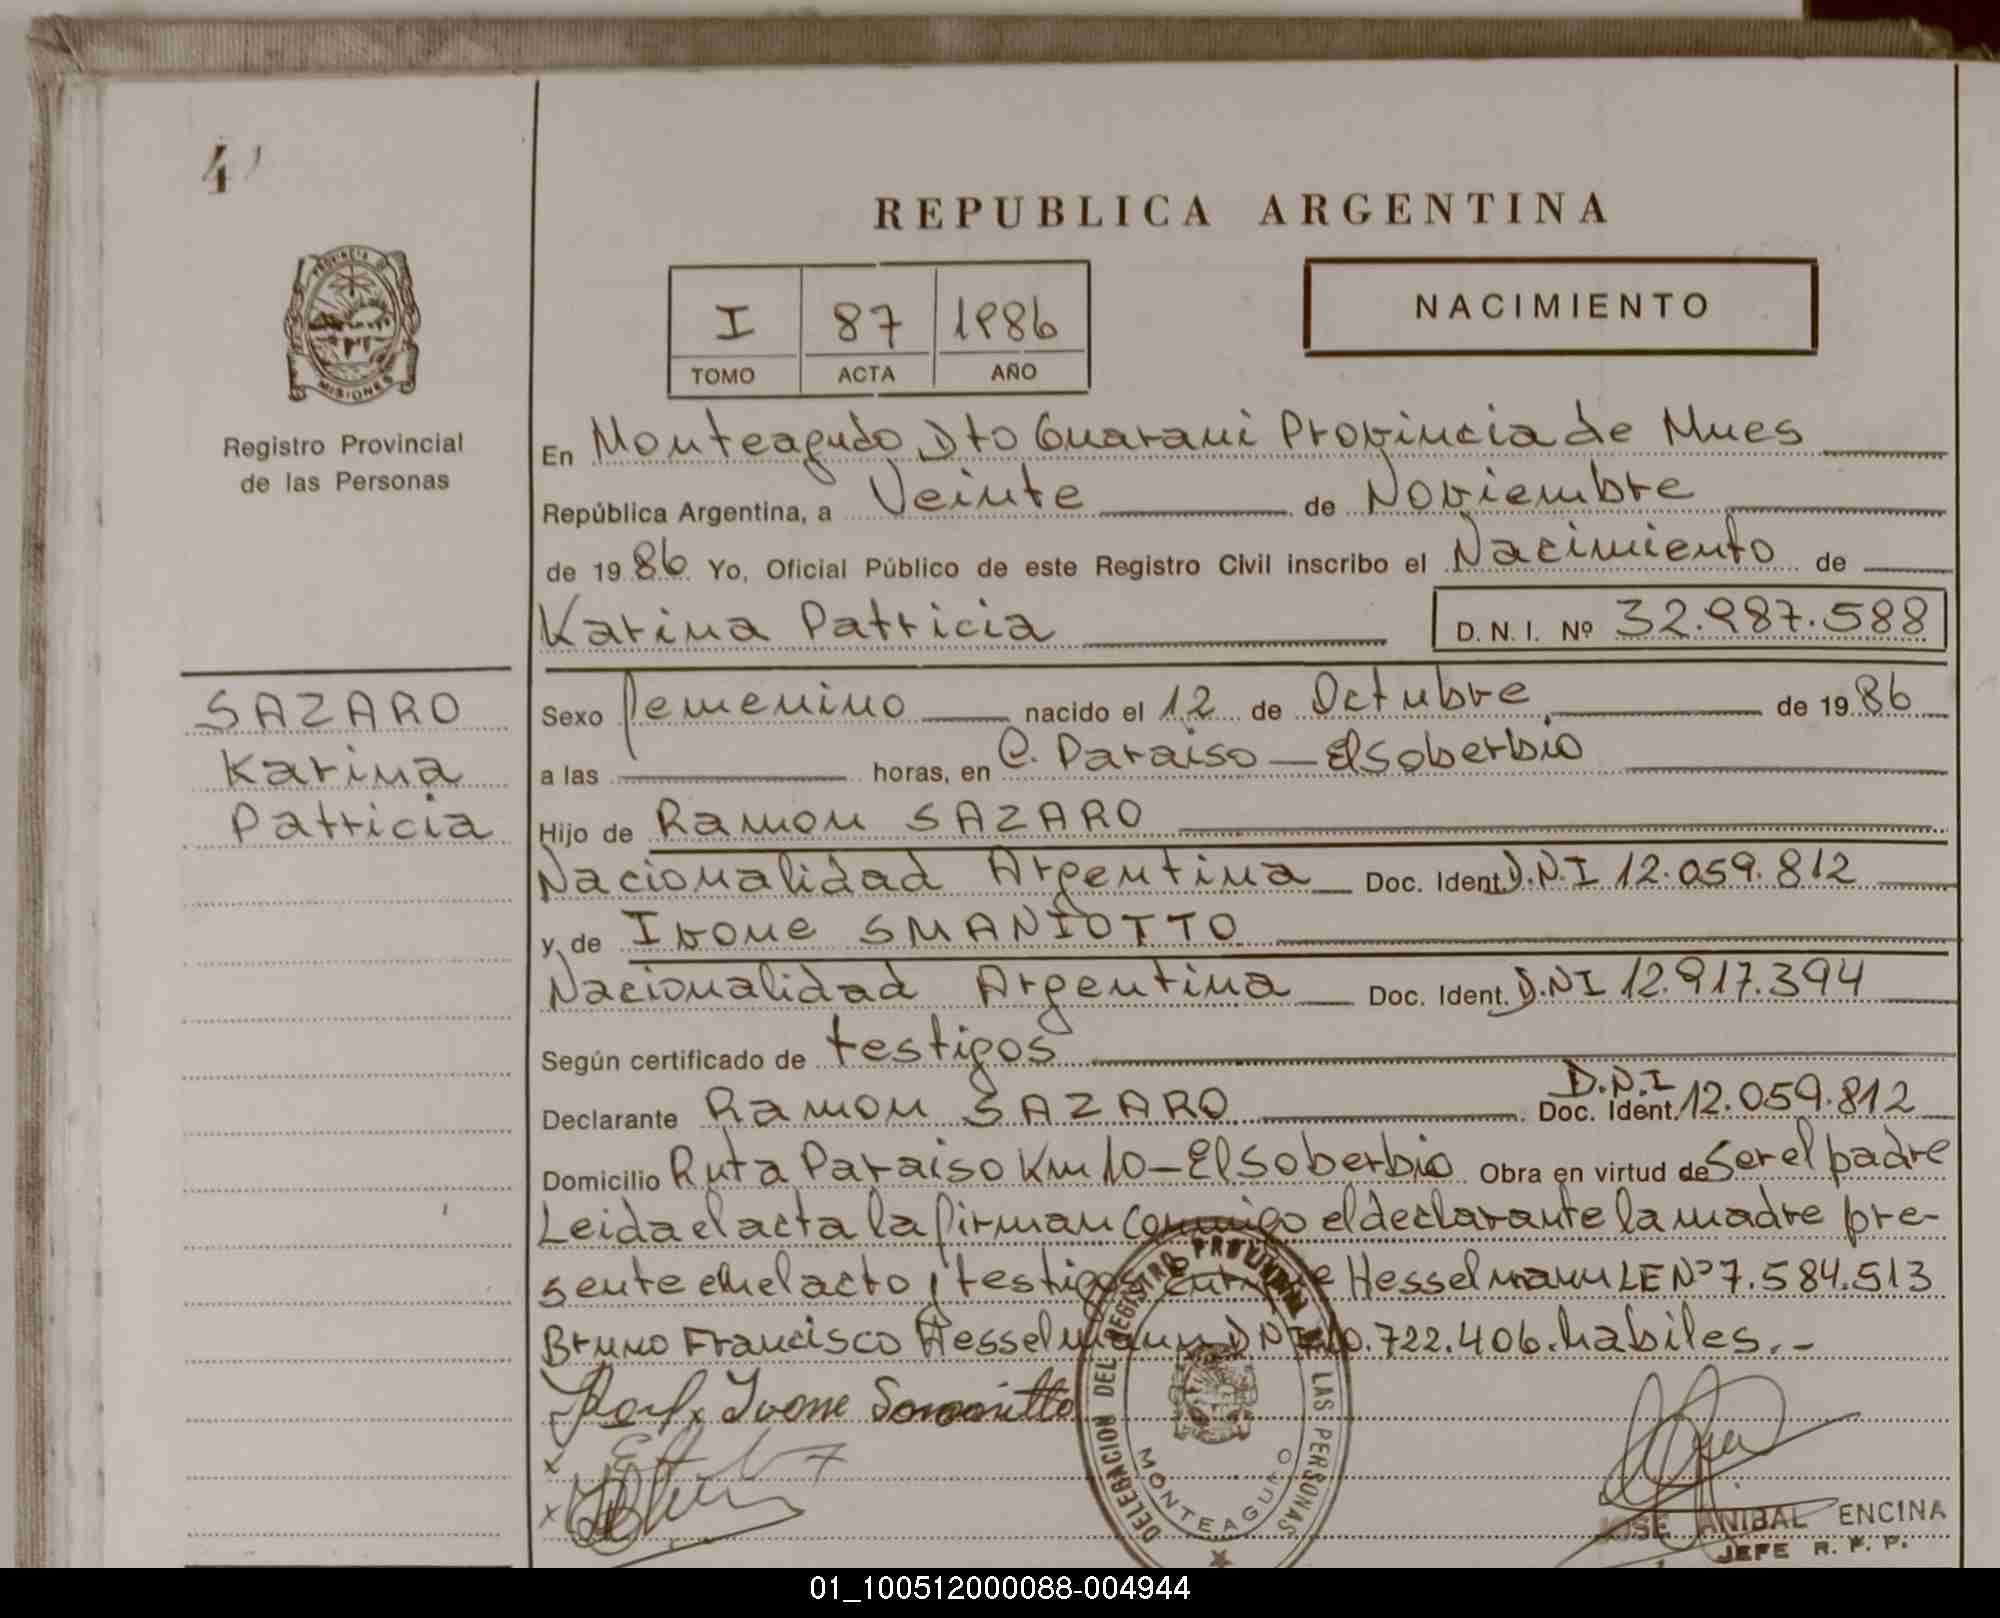 4
REPUBLICA ARGENTINA
PROVINCIA DE
MISIONES
Registro Provincial
de las Personas
I 87 1986
TOMO ACTA AÑO
NACIMIENTO
En Monteagudo Dto Guarani Provincia de Mnes
República Argentina, a Veinte de Noviembre
de 1986 Yo, Oficial Público de este Registro Civil inscribo el Nacimiento de
Karina Patricia D. N. I. Nº 32.987.588
SAZARO
Karina
Patricia
Sexo femenino nacido el 12 de Octubre de 1986
a las horas, en C. Paraiso - El Soberbio
Hijo de Ramon SAZARO
Nacionalidad Argentina Doc. Ident. D.N.I 12.059.812
y de Ivone SMANIOTTO
Nacionalidad Argentina Doc. Ident. D.NI 12.917.394
Según certificado de testigos
Declarante Ramon SAZARO Doc. Ident. D.N.I 12.059.812
Domicilio Ruta Paraiso Km 10 - El Soberbio Obra en virtud de Ser el padre
Leida el acta la firman conmigo el declarante la madre pre-
sente en el acto, testigos Hesselmann LE Nº 7.584.513
Bruno Francisco Hesselmann DNI 10.722.406. habiles.-
Ivone
DELEGACION DEL REGISTRO PROVINCIAL DE LAS PERSONAS
MONTEAGUDO
JOSE ANIBAL ENCINA
JEFE R. P. P.
01_100512000088-004944